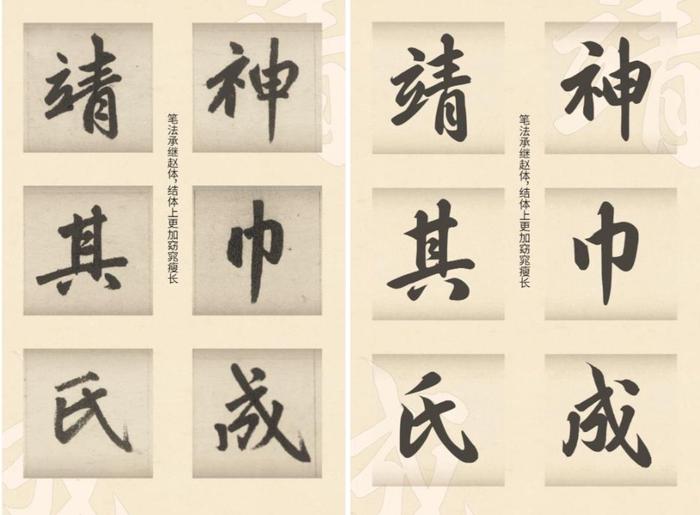 靖 神
其 巾
氏 成
笔法承继赵体，结体上更加窈窕瘦长
靖 神
其 巾
氏 成
笔法承继赵体，结体上更加窈窕瘦长